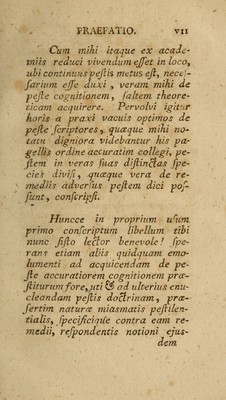 PRAEFATIO. VII
Cum mihi itaque ex acade-
miis reduci vivendum eſſet in loco,
ubi continuus peſtis metus eſt, neceſ-
ſarium eſſe duxi, veram mihi de
peſte cognitionem, ſaltem theore-
ticam acquirere. Pervolvi igitur
horis a praxi vacuis optimos de
peſte ſcriptores, quæque mihi no-
tatu digniora videbantur his pa-
gellis ordine accuratim collegi, pe-
ſtem in veras ſuas diſtinctas ſpe-
cies diviſi, quæque vera de re-
mediis adverſus peſtem dici poſ-
ſunt, conſcripſi.
Huncce in proprium uſum
primo conſcriptum libellum tibi
nunc ſiſto lector benevole! ſpe-
rans etiam aliis quidquam emo-
lumenti ad acquicendam de pe-
ſte accuratiorem cognitionem præ-
ſtiturum fore, uti & ad ulterius enu-
cleandam peſtis doctrinam, præ-
ſertim naturæ miasmatis peſtilen-
tialis, ſpecificique contra eam re-
medii, reſpondentis notioni ejus-
dem